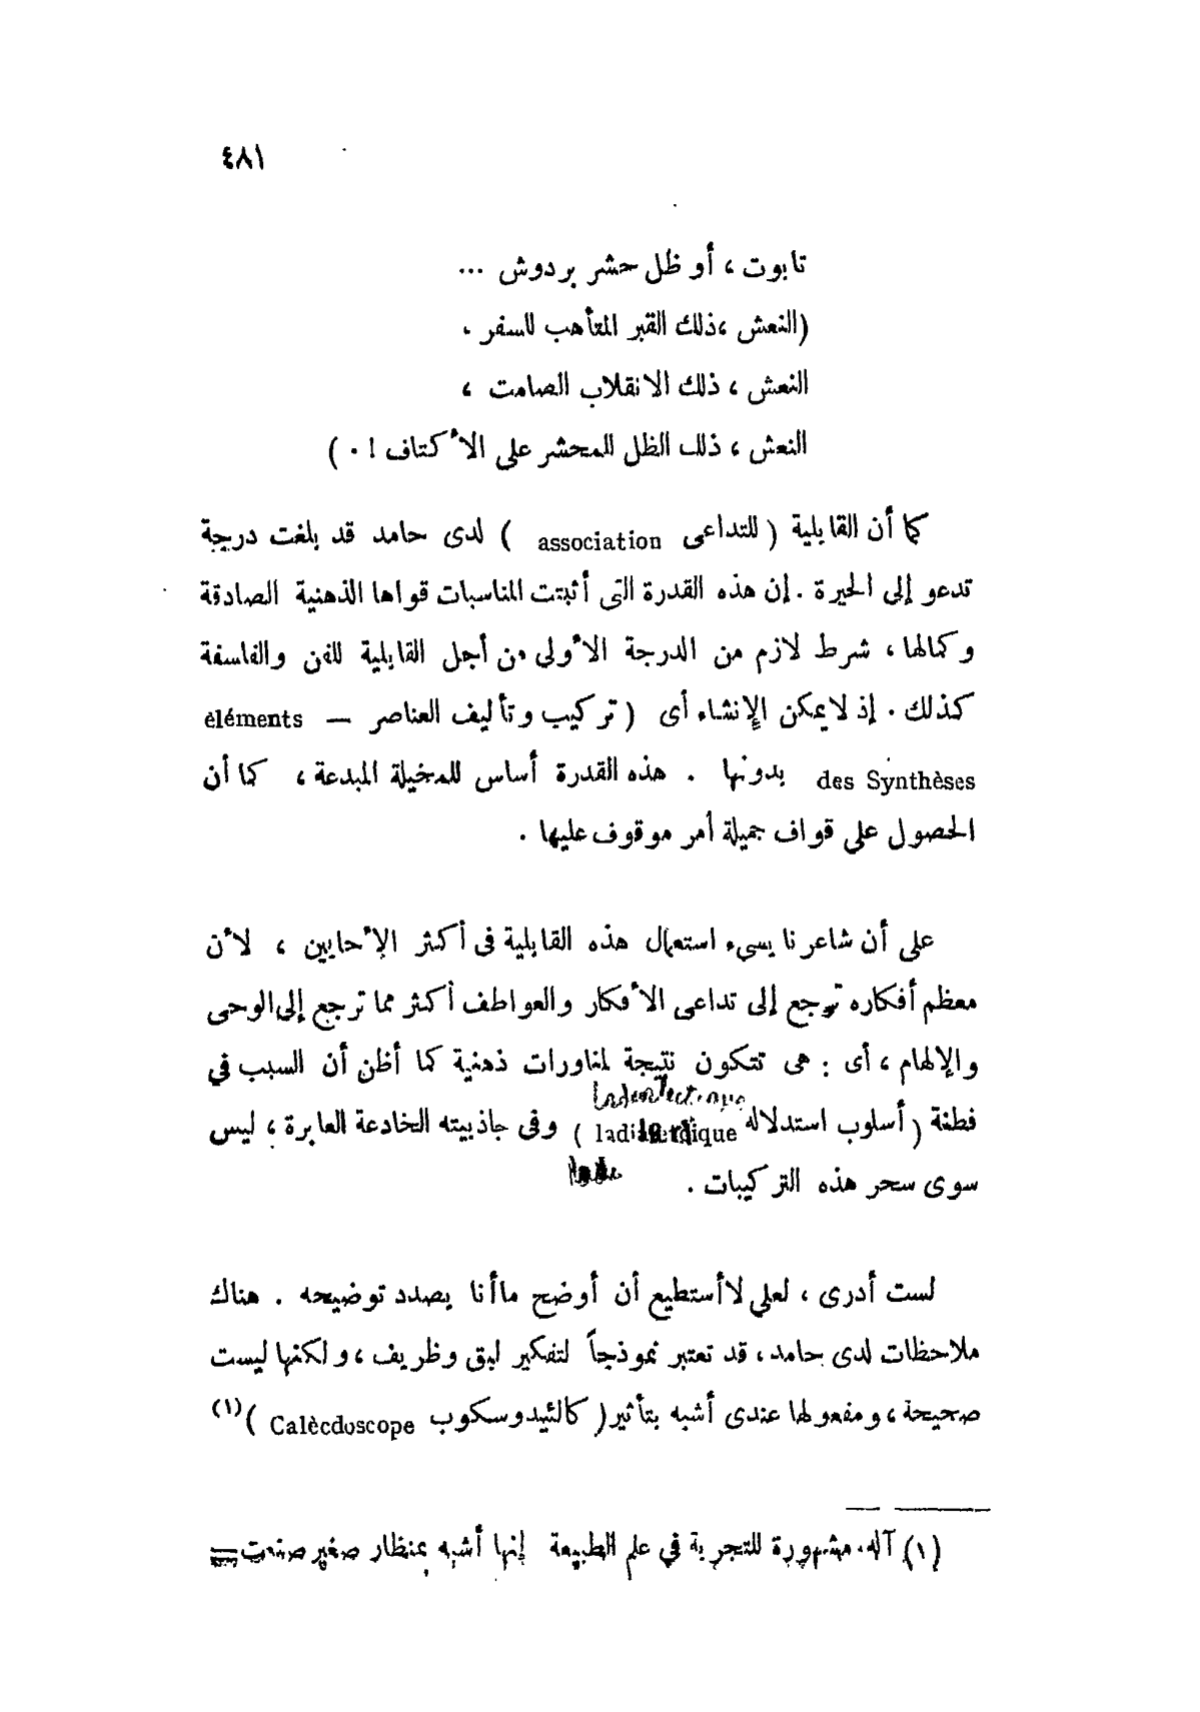 ٤٨١
تابوت ، أو ظل حشر بردوش ...
(النعش ،ذلك القبر المتأهب للسفر .
النعش ، ذلك الانقلاب الصامت ،
النعش ، ذلك الظل للمحشر على الأكتاف ! . )
كما أن القابلية ( للتداعى association ) لدى حامد قد بلغت درجة
تدعو إلى الحيرة . إن هذه القدرة التى أثبتت المناسبات قواها الذهنية الصادقة
وكمالها ، شرط لازم من الدرجة الأولى من أجل القابلية للفن والفلسفة
كذلك . إذ لا يمكن الإنشاء أى ( تركيب وتأليف العناصر — èléments
des Synthèses بدونها . هذه القدرة أساس للمخيلة المبدعة ، كما أن
الحصول على قواف جميلة أمر موقوف عليها .
على أن شاعرنا يسىء استعمال هذه القابلية فى أكثر الأحايين ، لأن
معظم أفكاره ترجع إلى تداعى الأفكار والعواطف أكثر مما ترجع إلى الوحى
والإلهام ، أى : هى تتكون نتيجة لمناورات ذهنية كما أظن أن السبب في
فطنة ( أسلوب استدلاله ) وفى جاذبيته الخادعة العابرة ، ليس
سوى سحر هذه التركيبات .
لست أدرى ، لعلي لا أستطيع أن أوضح ما أنا بصدد توضيحه . هناك
ملاحظات لدى حامد ، قد تعتبر نموذجاً لتفكير لبق وظريف ، ولكنها ليست
صحيحة ، ومفعولها عندى أشبه بتأثير ( كالئيدوسكوب Calècdoscope )(١)
(١) آلة مشهورة للتجربة في علم الطبيعة إنها أشبه بمنظار صغير صنعت =